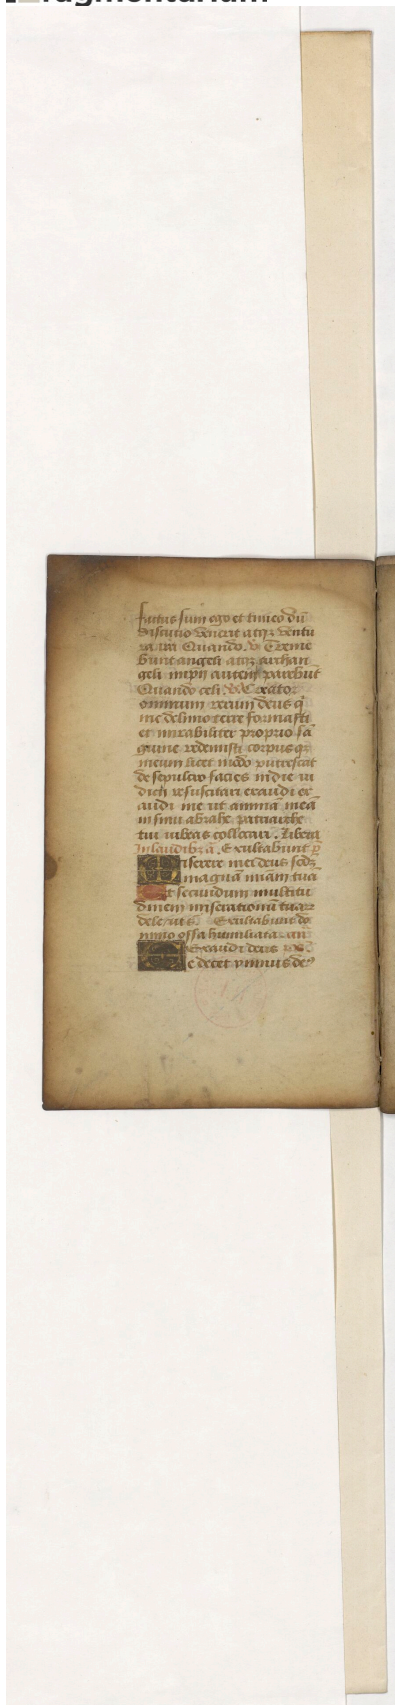 factus sum ego et timeo dū
discucio venerit atqꝫ ventu
ra ira Quando. ꝟ Treme
bunt angeli atqꝫ archan
geli impij autem parebūt
Quando celi ꝟ Creator
omnium rerum deus q̇
me de limo terre formasti
et mirabiliter proprio sā
guine redemisti corpus qꝫ
meum licet modo putrescat
de sepulcro facies in die iu
dicij resuscitari exaudi ex
audi me ut animā meā
in sinu abrahe patriarche
tui iubeas collocari . Libera
In laudibꝫ ā . Exultabunt p̄
Miserere mei deus scdꝫ
magnā miām tuā
Et secundum multitu
dinem miserationū tuaꝝ
dele Exultabunt do
mino ossa humiliata
Exaudi deus
Te decet ymnus de